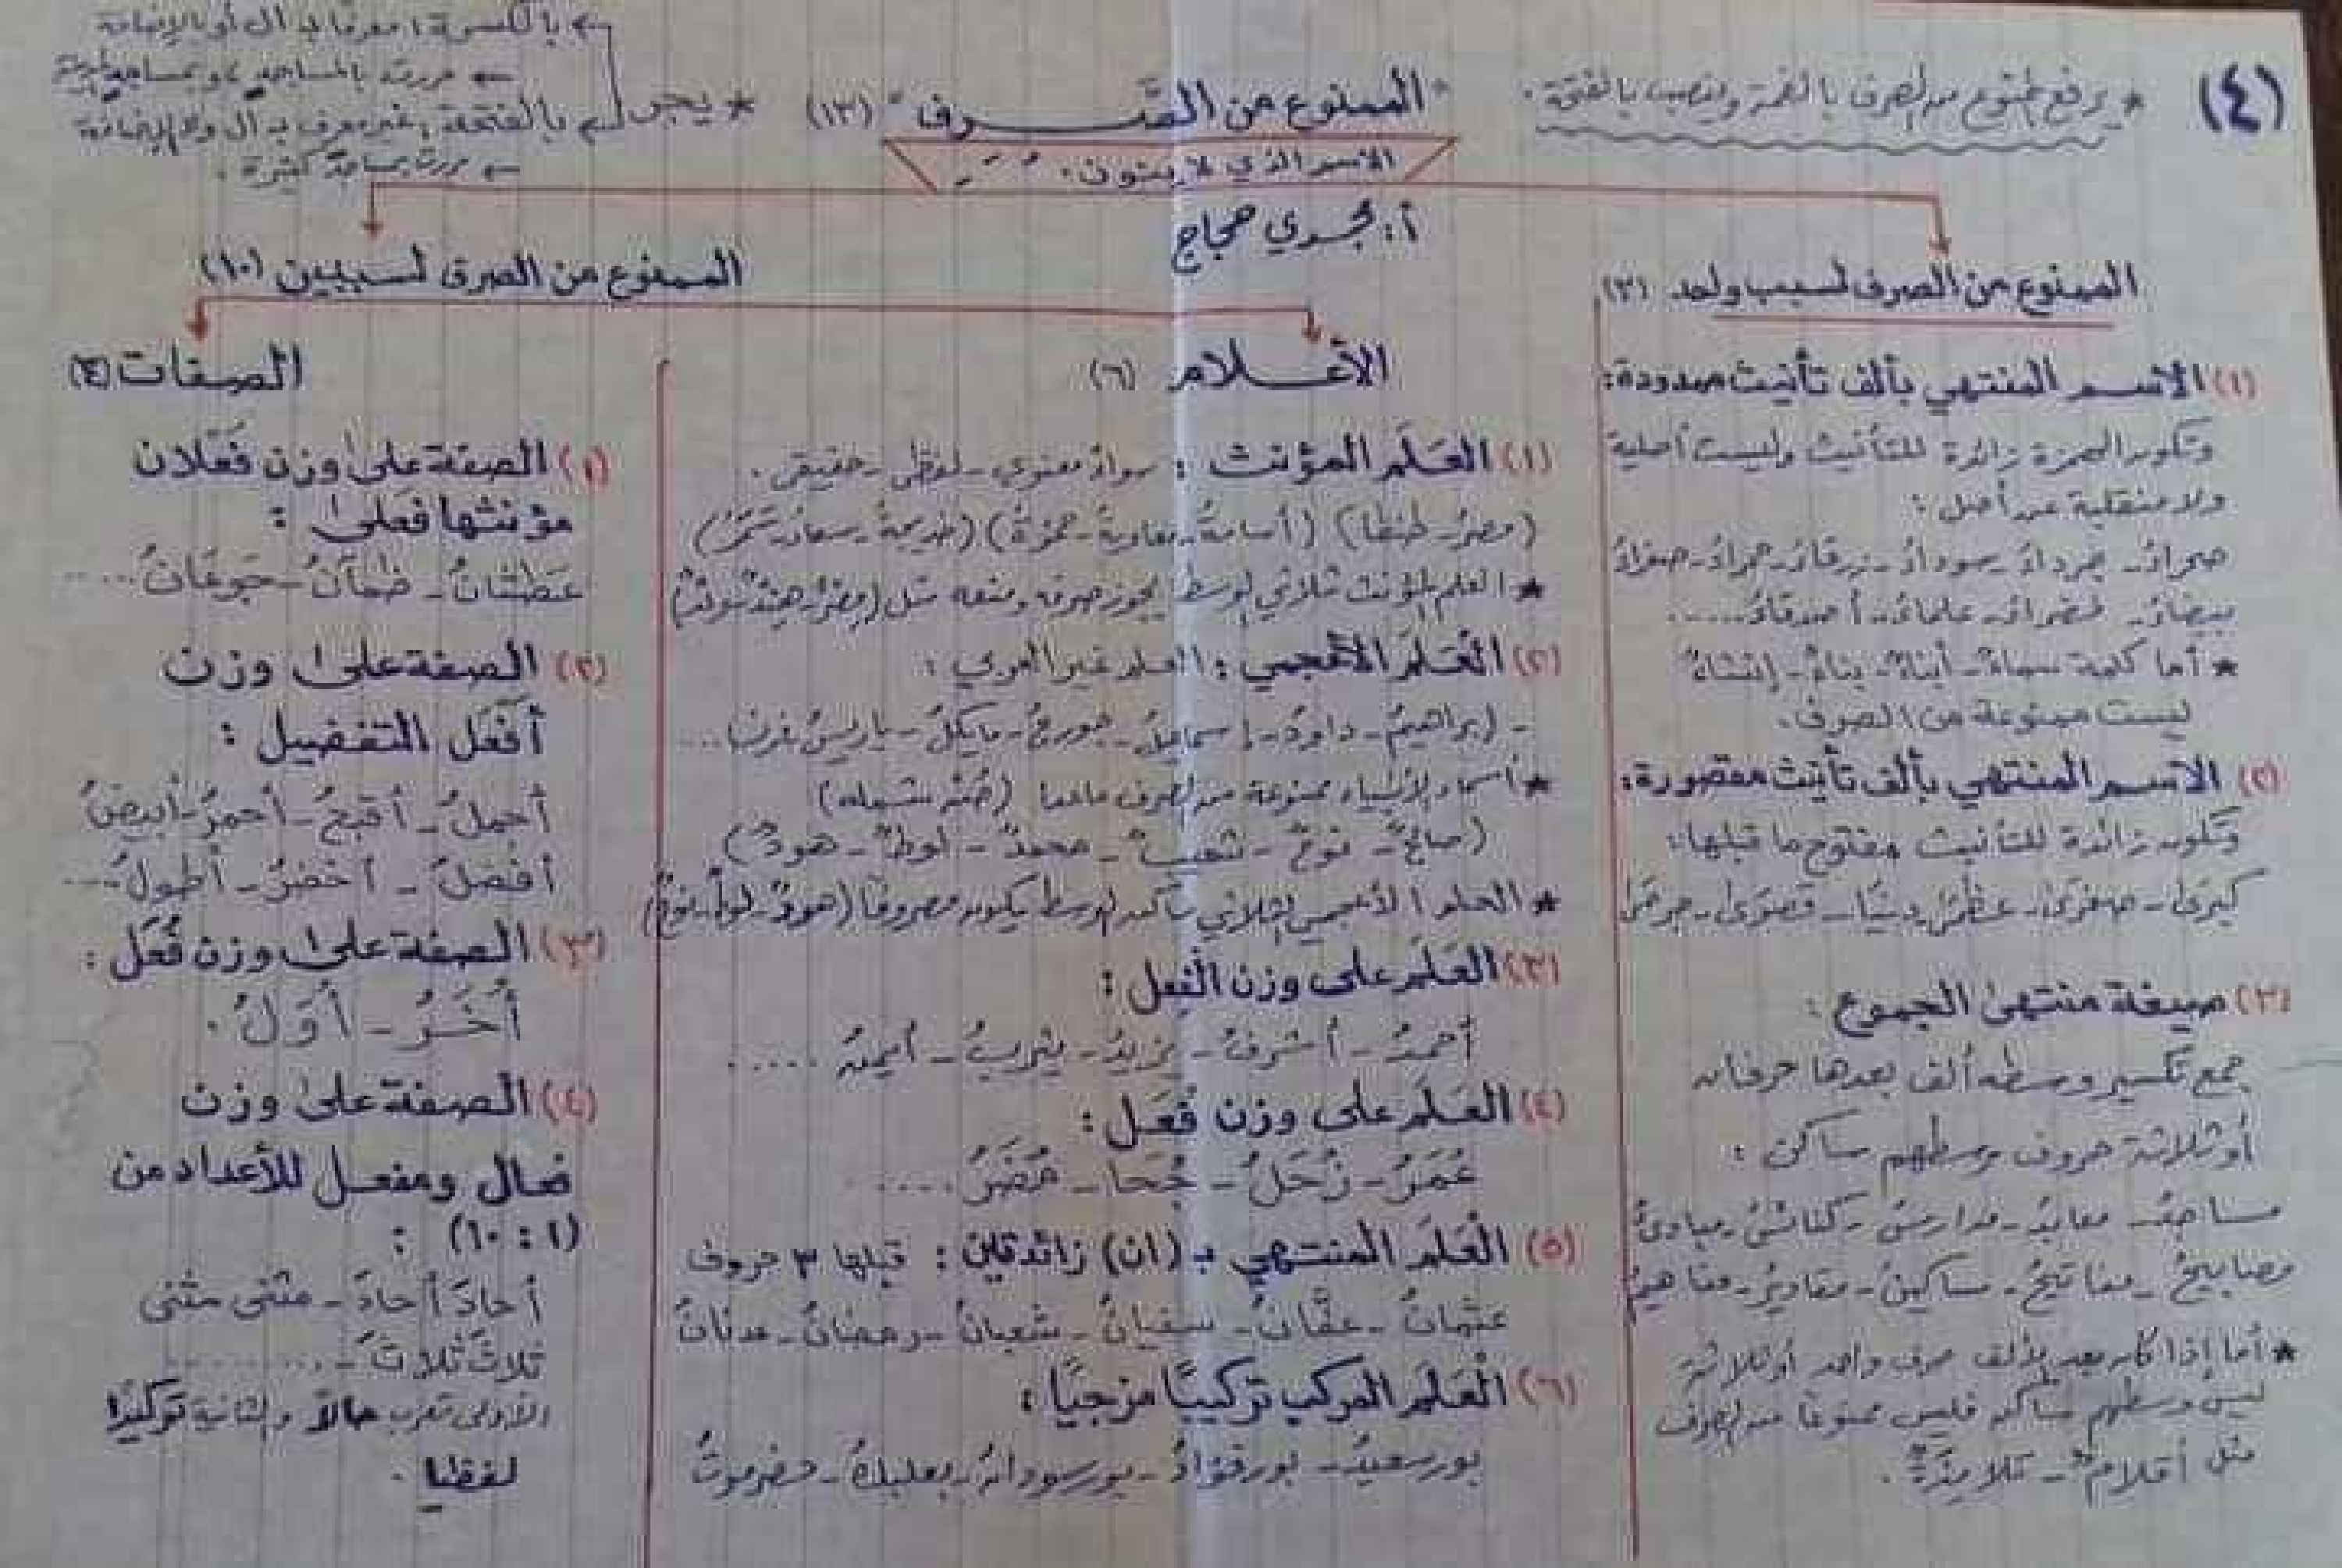 (٤)
* يرفع الممنوع من الصرف بالضمة وينصب بالفتحة.
"الممنوع من الصَّرف" (١٣)
الاسم الذي لا ينون.
* يجر
← بالكسرة: معرفًا بـ ال أو بالإضافة
← مررت بالمساجدِ، وبمساجدِ
بالفتحة: غير معرف بـ ال ولا بالإضافة
← مررت بمساجدَ كثيرة.
أ: مجدي حجاج
الممنوع من الصرف لسبب واحد (٣)
(١) الاسم المنتهي بألف تأنيث ممدودة:
وتكون الهمزة زائدة للتأنيث وليست أصلية
ولا منقلبة عن أصل:
صحراءُ - جرداءُ - سوداءُ - زرقاءُ - حمراءُ - صفراءُ
بيضاءُ - خضراءُ - علماءُ - أصدقاءُ .....
* أما كلمة سماءٌ - أبناءٌ - بناءٌ - إنشاءٌ
ليست ممنوعة من الصرف.
(٢) الاسم المنتهي بألف تأنيث مقصورة:
وتكون زائدة للتأنيث مفتوح ما قبلها:
كبرَى - صغرَى - عظمَى - دنيَا - قصوَى - جرحَى
(٣) صيغة منتهى الجموع:
جمع تكسير وسطه ألف بعدها حرفان
أو ثلاثة حروف وسطهم ساكن:
مساجدُ - معابدُ - مدارسُ - كنائسُ - مبادئُ
مصابيحُ - مفاتيحُ - مساكينُ - مقاديرُ - مفاهيمُ
* أما إذا كان بعد الألف حرف واحد أو ثلاثة
ليس وسطهم ساكن فليس ممنوعًا من الصرف
مثل أقلامٌ - تلاميذةٌ.
الممنوع من الصرف لسببين (١٠)
الأعلام (٦)
(١) العَلَم المؤنث: سواءٌ معنوي - لفظي - حقيقي.
(مصرُ - طنطا) (أسامةُ - معاويةُ - حمزةُ) (خديجةُ - سعادُ - سَمَرُ)
* العلم المؤنث ثلاثي الوسط يجوز صرفه ومنعه مثل (مِصْر - هِنْد - دَعْد)
(٢) العَلَم الأعجمي: العلم غير العربي:
- إبراهيمُ - داودُ - إسماعيلُ - جورجُ - مايكلُ - باريسُ - فرنسا ...
* أسماء الأنبياء ممنوعة من الصرف ماعدا (صُنْ شمله)
(صالحٌ - نوحٌ - شعيبٌ - محمدٌ - لوطٌ - هودٌ)
* العلم الأعجمي الثلاثي ساكن الوسط يكون مصروفًا (هودٌ - لوطٌ - نوحٌ)
(٣) العَلَم على وزن الفِعل:
أحمدُ - أشرفُ - يزيدُ - يثربُ - أيمنُ .....
(٤) العَلَم على وزن فُعَل:
عُمَرُ - زُحَلُ - جُحَا - مُضَرُ .....
(٥) العَلَم المنتهي بـ (ان) زائدتين: قبلها ٣ حروف
عثمانُ - عفَّانُ - سفيانُ - شعبانُ - رمضانُ - عدنانُ
(٦) العَلَم المركب تركيبًا مزجيًا:
بورسعيدُ - بورفؤادُ - بورسودانُ - بعلبكُ - حضرموتُ
الصفات (٤)
(١) الصفة على وزن فَعْلان
مؤنثها فَعلى:
عَطشانُ - ظمآنُ - جَوعَانُ .....
(٢) الصفة على وزن
أفعَل التفضيل:
أجملُ - أقبحُ - أحمرُ - أبيضُ
أفضلُ - أخضرُ - أطولُ ...
(٣) الصفة على وزن فُعَل:
أُخَرُ - أُوَلُ.
(٤) الصفة على وزن
فعال ومفعل للأعداد من
(١ : ١٠) :
أُحادَ أُحادَ - مثنى مثنى
ثلاثَ ثلاثَ - ........
الأولى تعرب حالاً والثانية توكيدًا
لفظيا.